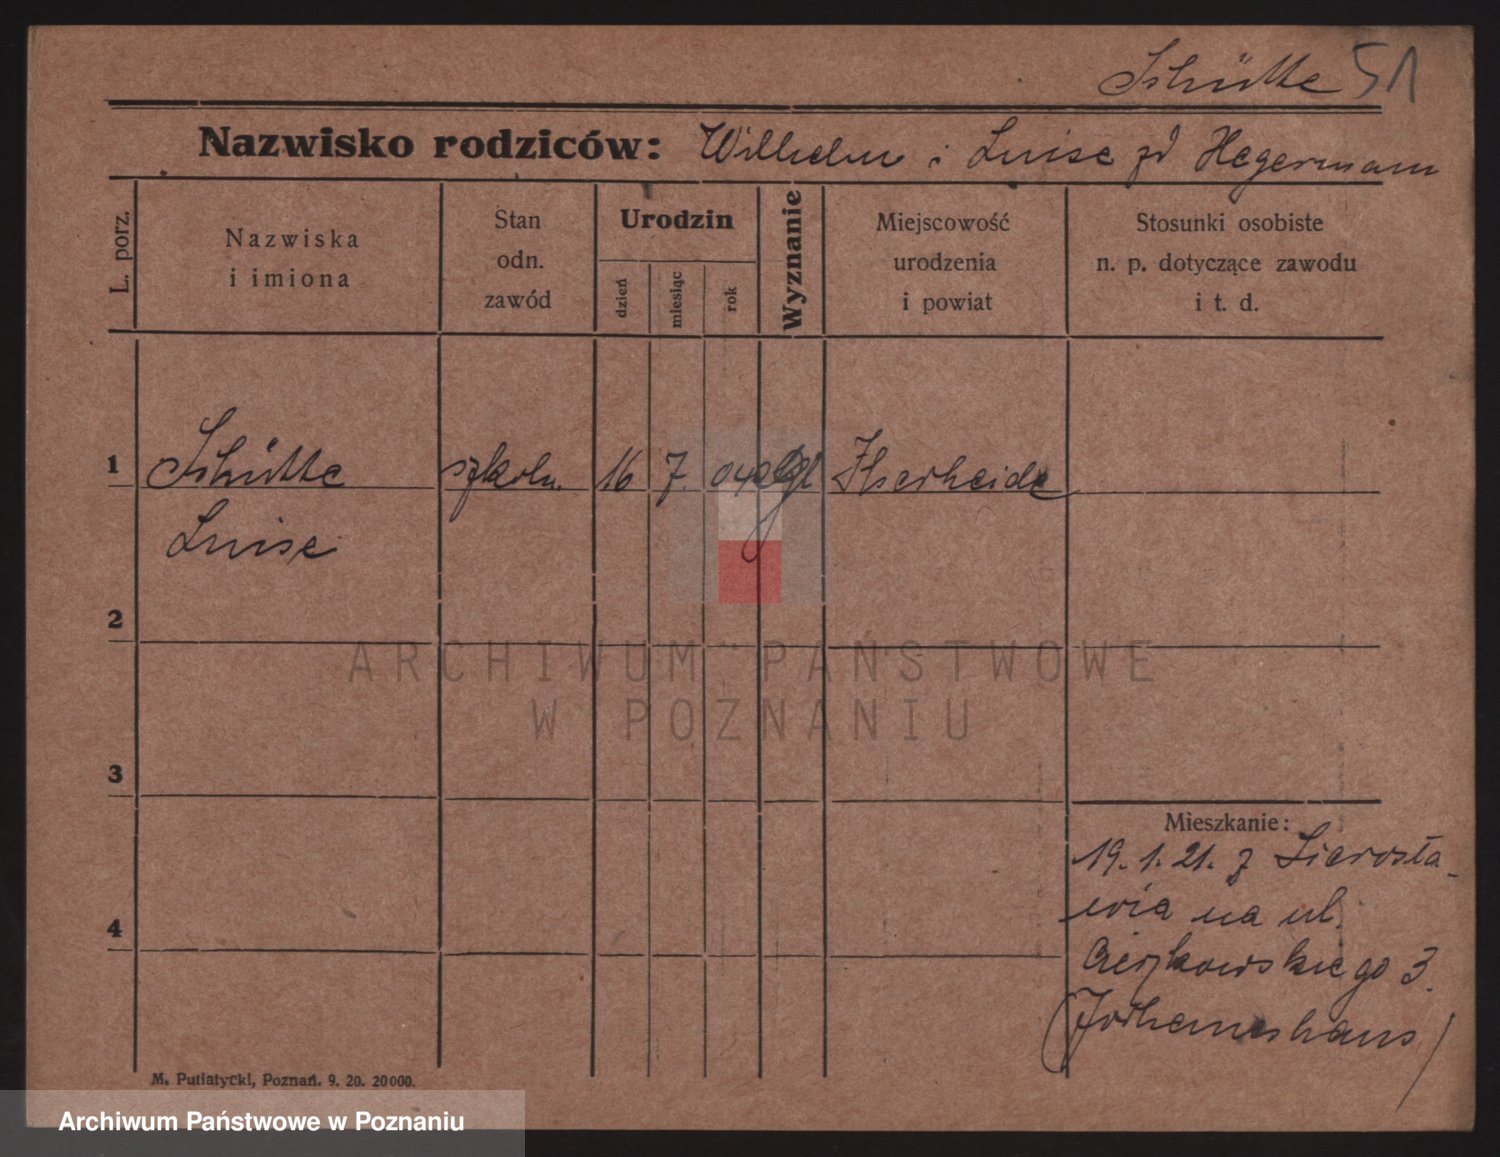 Schütte 51
Nazwisko rodziców: Wilhelm i Luise zd Hegermann
L. porz.
Nazwiska
i imiona
Stan
odn.
zawód
Urodzin
dzień
miesiąc
rok
Wyznanie
Miejscowość
urodzenia
i powiat
Stosunki osobiste
n. p. dotyczące zawodu
i t. d.
1 Schütte szkoln. 16 7. 04 Ilserheide
Luise
2
3
4
Mieszkanie:
19. 1. 21. z Sierosła-
wia na ul.
Cieszkowskiego 3.
(Johanneshaus)
M. Putiatycki, Poznań. 9. 20. 20000.
ARCHIWUM PAŃSTWOWE
W POZNANIU
Archiwum Państwowe w Poznaniu